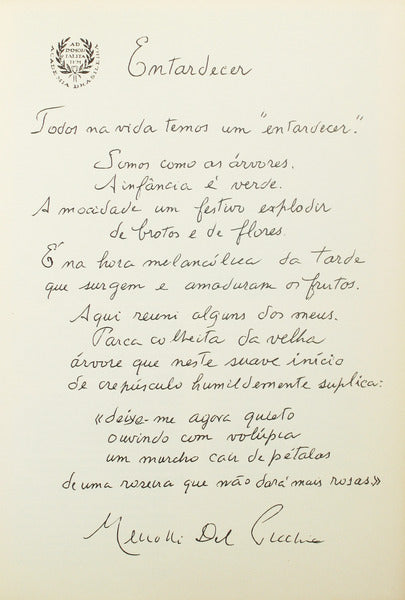 ACADEMIA BRASILEIRA
AD
IMMOR
TALITA
TEM
Entardecer
Todos na vida temos um "entardecer".
Somos como as árvores.
A infância é verde.
A mocidade um festivo explodir
de brotos e de flores.
É na hora melancólica da tarde
que surgem e amaduram os frutos.
Aqui reuni alguns dos meus.
Parca colheita da velha
árvore que neste suave início
de crepúsculo humildemente suplica:
«deixe-me agora quieto
ouvindo com volúpia
um murcho cair de pétalas
de uma roseira que não dará mais rosas»
Menotti Del Picchia